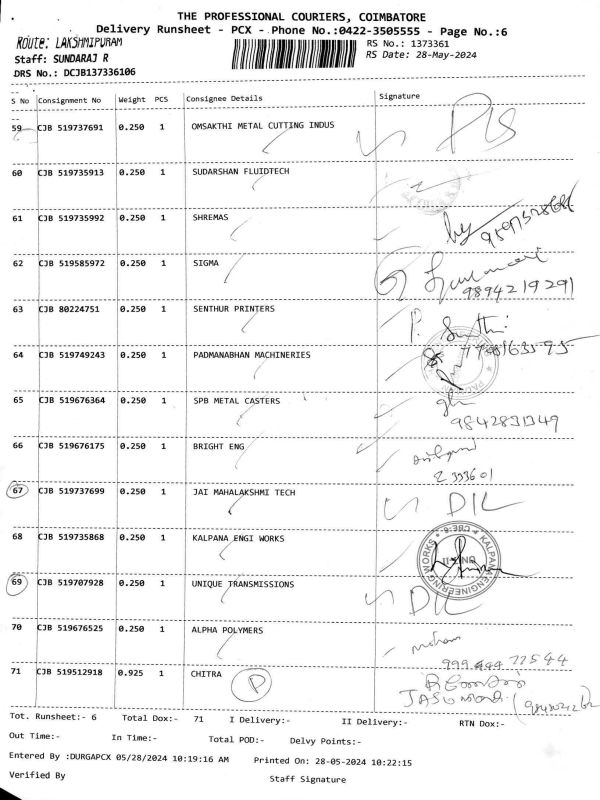 THE PROFESSIONAL COURIERS, COIMBATORE
Delivery Runsheet - PCX - Phone No.:0422-3505555 - Page No.:6
Route: LAKSHMIPURAM
RS No.: 1373361
Staff: SUNDARAJ R
RS Date: 28-May-2024
DRS No.: DCJB137336106
S No Consignment No Weight PCS Consignee Details Signature
59 CJB 519737691 0.250 1 OMSAKTHI METAL CUTTING INDUS
60 CJB 519735913 0.250 1 SUDARSHAN FLUIDTECH
61 CJB 519735992 0.250 1 SHREMAS
62 CJB 519585972 0.250 1 SIGMA
9894219291
63 CJB 80224751 0.250 1 SENTHUR PRINTERS
64 CJB 519749243 0.250 1 PADMANABHAN MACHINERIES
65 CJB 519676364 0.250 1 SPB METAL CASTERS
66 CJB 519676175 0.250 1 BRIGHT ENG
67 CJB 519737699 0.250 1 JAI MAHALAKSHMI TECH D/L
68 CJB 519735868 0.250 1 KALPANA ENGI WORKS
KALPANA ENGINEERING WORKS
69 CJB 519707928 0.250 1 UNIQUE TRANSMISSIONS D/L
70 CJB 519676525 0.250 1 ALPHA POLYMERS
71 CJB 519512918 0.925 1 CHITRA P
Tot. Runsheet:- 6 Total Dox:- 71 I Delivery:- II Delivery:- RTN Dox:-
Out Time:- In Time:- Total POD:- Delvy Points:-
Entered By :DURGAPCX 05/28/2024 10:19:16 AM Printed On: 28-05-2024 10:22:15
Verified By Staff Signature